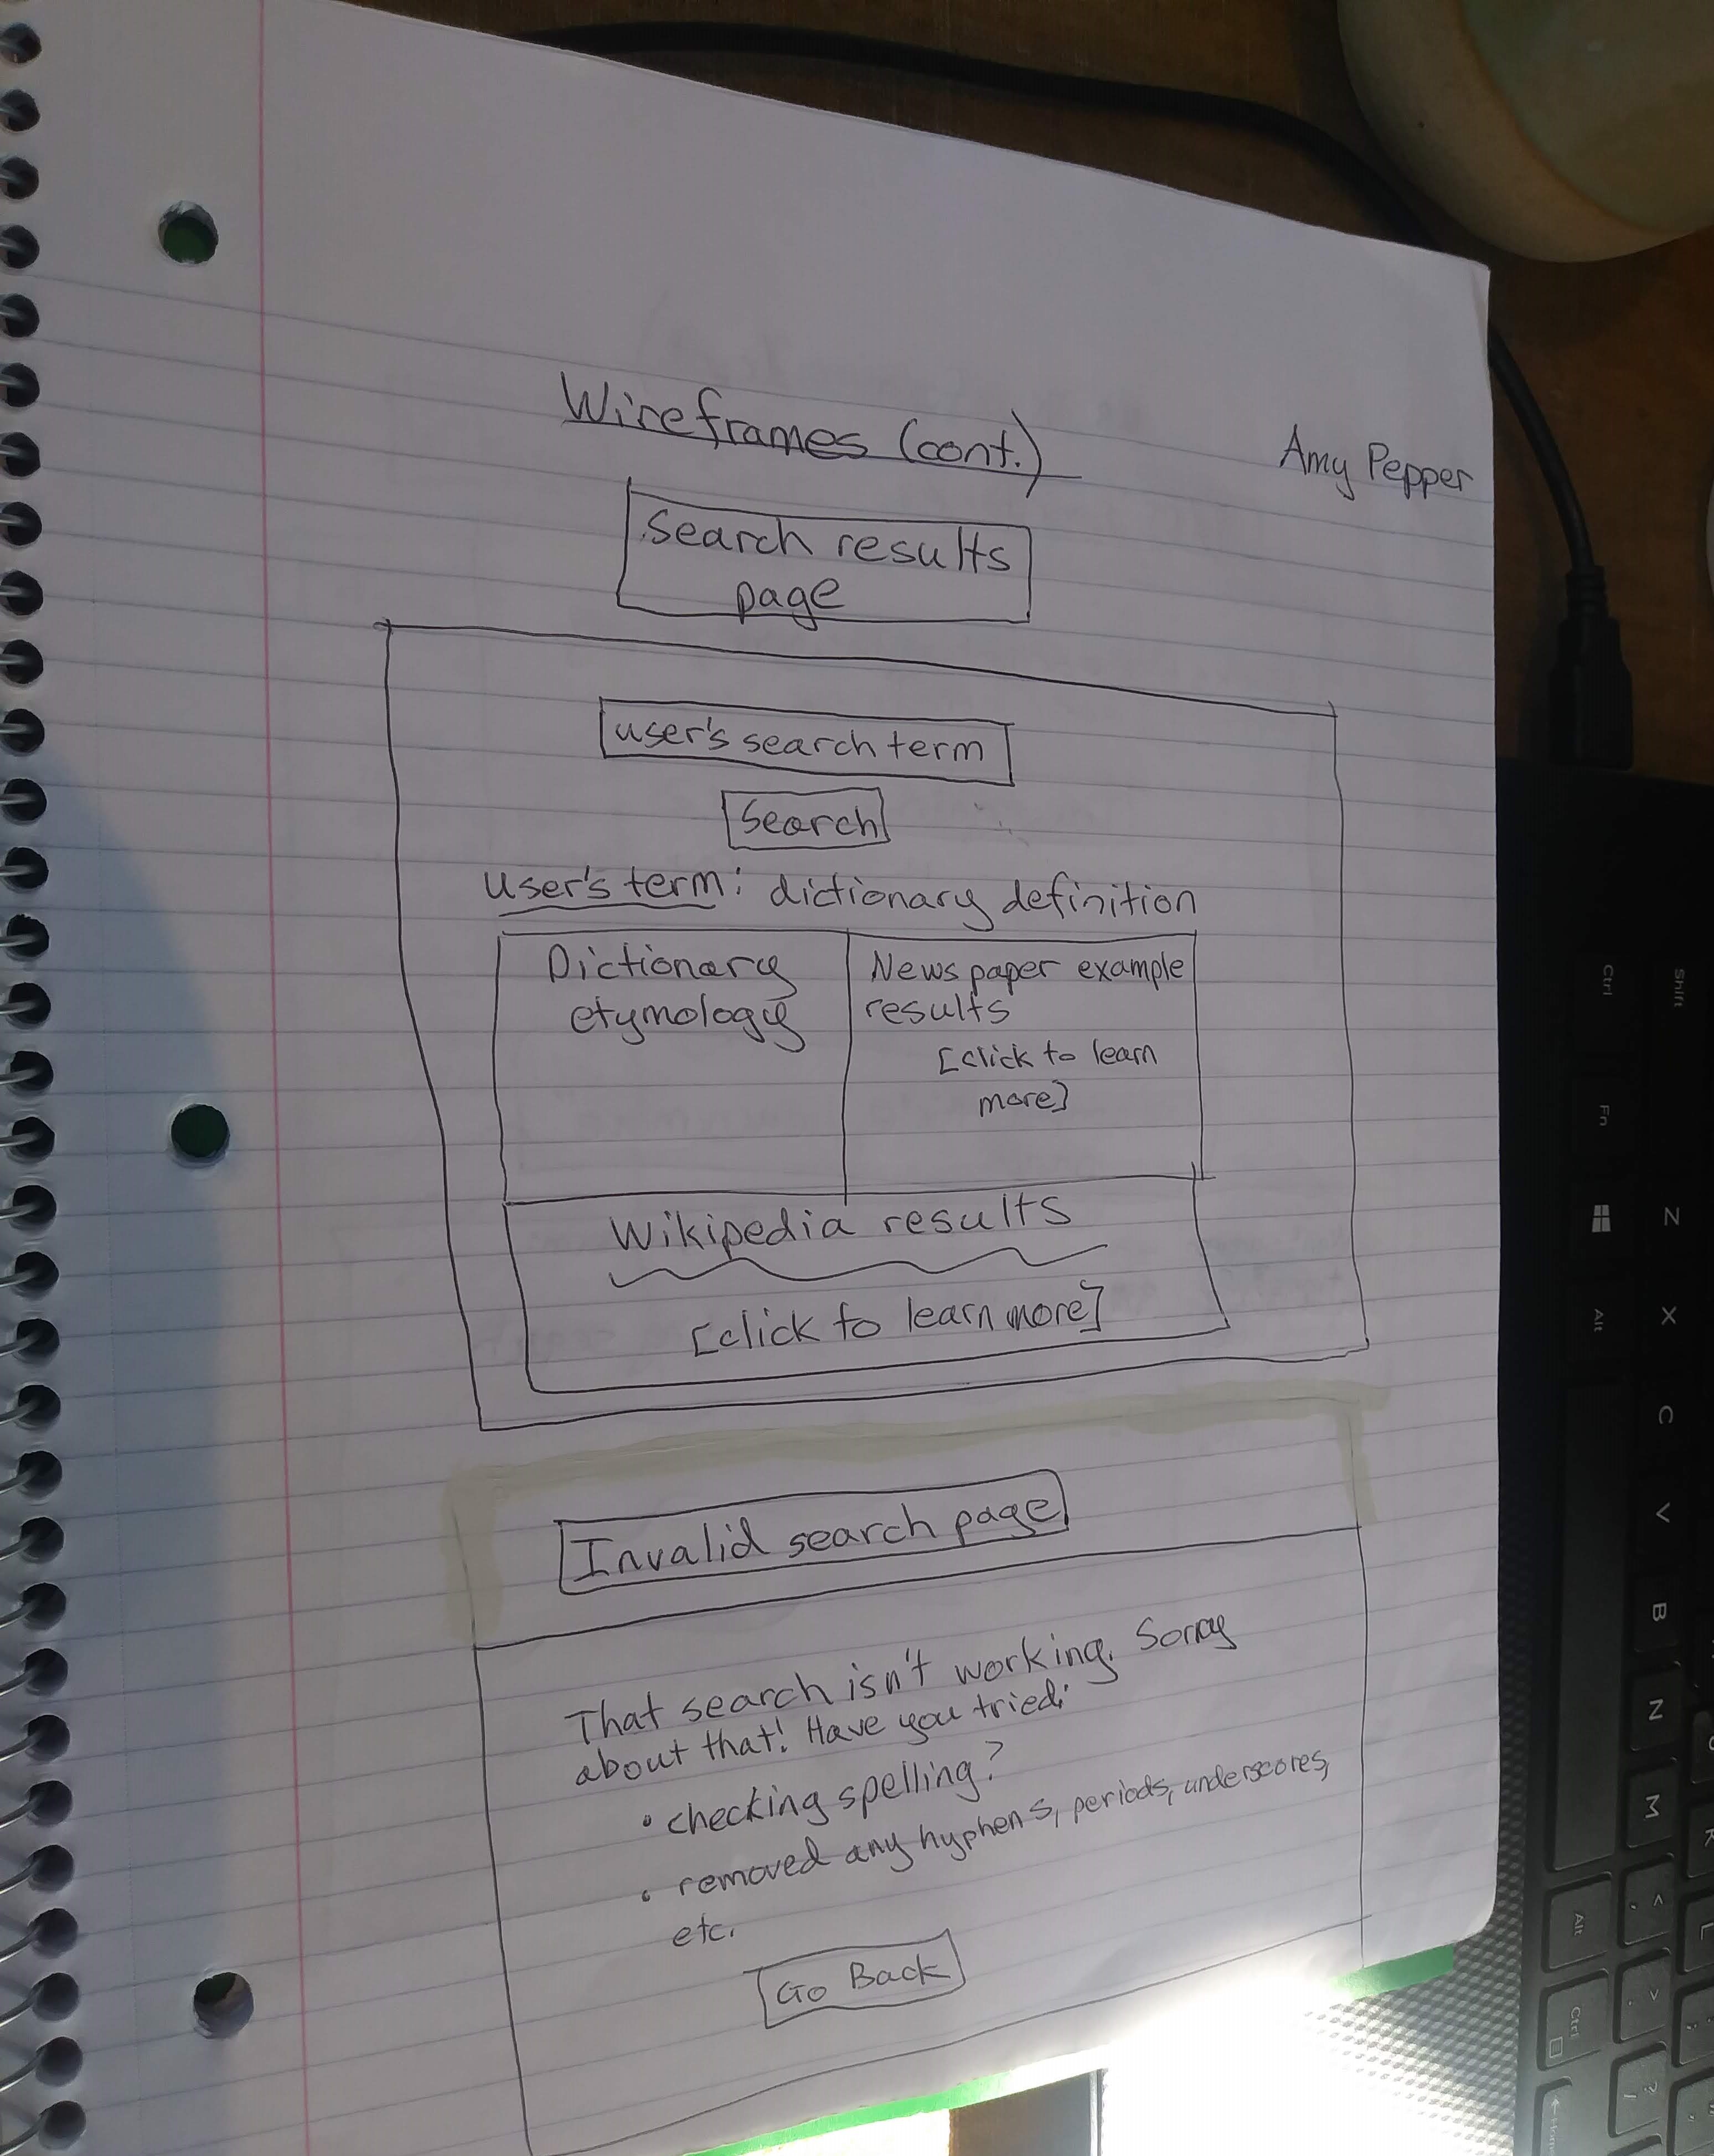 Wireframes (cont.)
Amy Pepper
Search results
page
user's search term
Search
user's term: dictionary definition
Dictionary
etymology
Newspaper example
results
[click to learn
more]
Wikipedia results
[click to learn more]
Invalid search page
That search isn't working. Sorry
about that! Have you tried:
• checking spelling?
• removed any hyphens, periods, underscores,
etc.
Go Back
Shift
Ctrl
Fn
Z
X
Alt
C
V
B
N
M
Alt
<
,
L
Ctrl
>
.
:
;
?
/